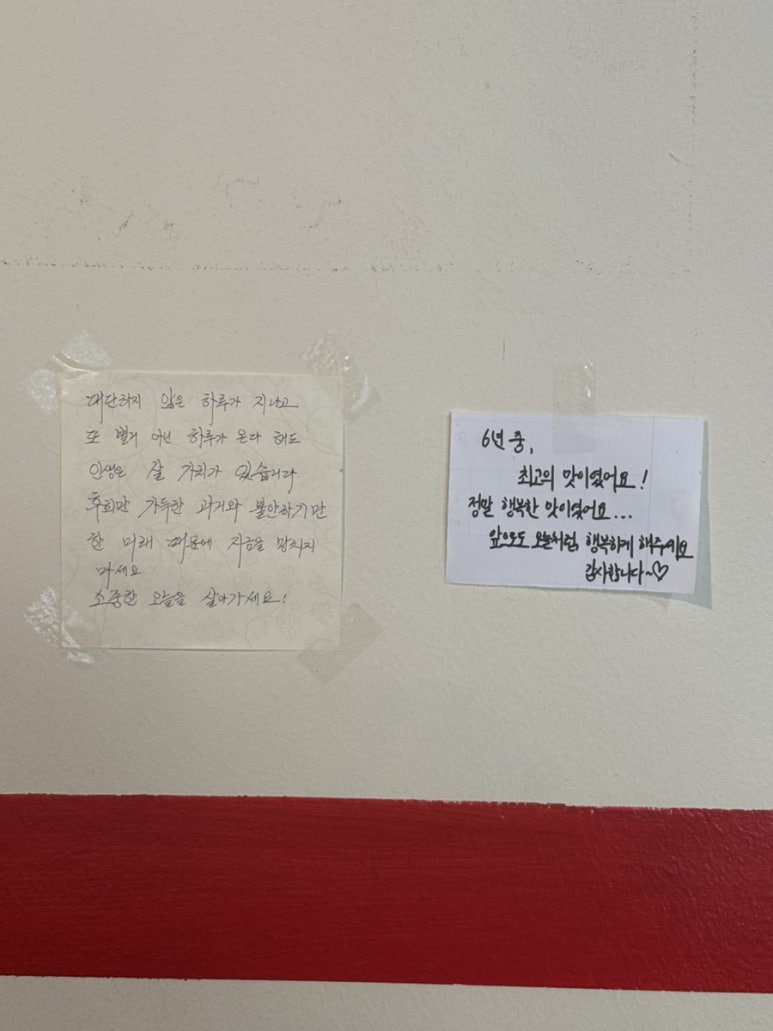 대단하지 않은 하루가 지나고
또 별거 아닌 하루가 온다 해도
인생은 살 가치가 있습니다
후회만 가득한 과거와 불안하기만
한 미래 때문에 지금을 망치지
마세요
소중한 오늘을 살아가세요!
6년 중,
최고의 맛이였어요!
정말 행복한 맛이였어요...
앞으로도 오늘처럼 행복하게 해주세요
감사합니다~♡